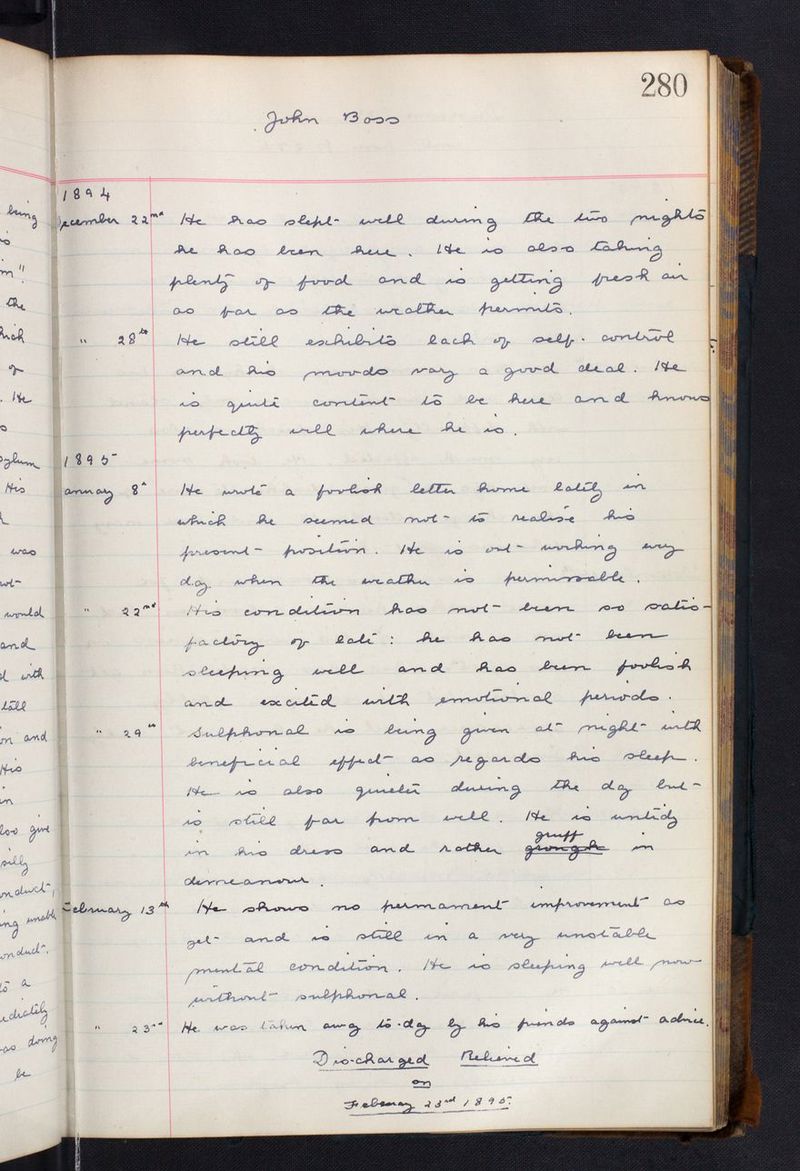 280
John Boss
1894
December 22nd He has slept well during the two nights
he has been here. He is also taking
plenty of food and is getting fresh air
as far as the weather permits.
" 28th He still exhibits lack of self-control
and his moods vary a good deal. He
is quite content to be here and knows
perfectly well where he is.
1895
anuary 8th He wrote a foolish letter home lately in
which he seemed not to realise his
present position. He is out working every
day when the weather is permissable.
" 22nd His condition has not been so satis-
factory of late: he has not been
sleeping well and has been foolish
and excited with emotional periods.
" 29th Sulphonal is being given at night with
beneficial effect as regards his sleep.
He is also quieter during the day but
is still far from well. He is untidy
gruff
in his dress and rather in
demeanour.
February 13th He shows no permament improvement as
yet and is still in a very unstable
mental condition. He is sleeping well now
without sulphonal.
" 23rd He was taken away to-day by his friends against advice.
Discharged Relieved
on
February 23rd 1895.
being
m".
the
hich
of
. He
sylum
His
was
not-
would
and
d with
tall
on and
His
in
too give
silly
onduct,
ing unable
onduct.
to a
ediately
as doing
be